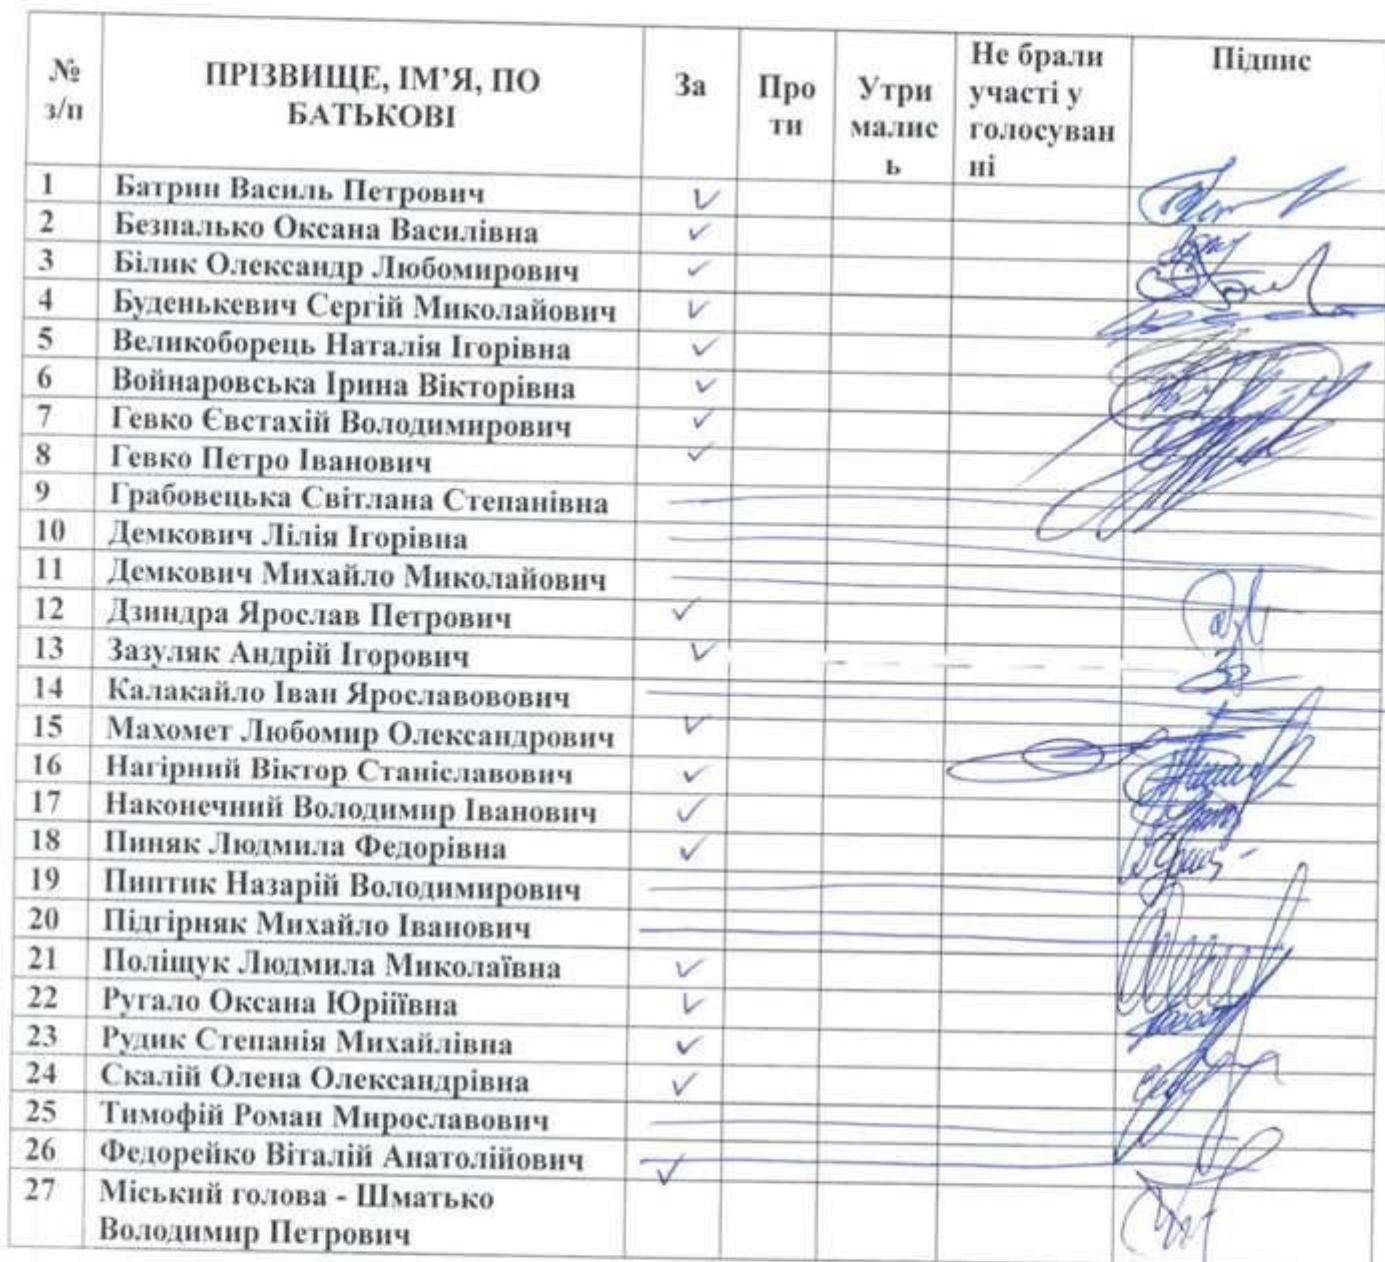 № з/п
ПРІЗВИЩЕ, ІМ’Я, ПО БАТЬКОВІ
За
Про ти
Утри малис ь
Не брали участі у голосуван ні
Підпис
1 Батрин Василь Петрович ✓
2 Безпалько Оксана Василівна ✓
3 Білик Олександр Любомирович ✓
4 Буденькевич Сергій Миколайович ✓
5 Великоборець Наталія Ігорівна ✓
6 Войнаровська Ірина Вікторівна ✓
7 Гевко Євстахій Володимирович ✓
8 Гевко Петро Іванович ✓
9 Грабовецька Світлана Степанівна
10 Демкович Лілія Ігорівна
11 Демкович Михайло Миколайович
12 Дзиндра Ярослав Петрович ✓
13 Зазуляк Андрій Ігорович ✓
14 Калакайло Іван Ярославовович
15 Махомет Любомир Олександрович ✓
16 Нагірний Віктор Станіславович ✓
17 Наконечний Володимир Іванович ✓
18 Пиняк Людмила Федорівна ✓
19 Пиптик Назарій Володимирович
20 Підгірняк Михайло Іванович
21 Поліщук Людмила Миколаївна ✓
22 Ругало Оксана Юріїївна ✓
23 Рудик Степанія Михайлівна ✓
24 Скалій Олена Олександрівна ✓
25 Тимофій Роман Мирославович
26 Федорейко Віталій Анатолійович
27 Міський голова - Шматько ✓
Володимир Петрович